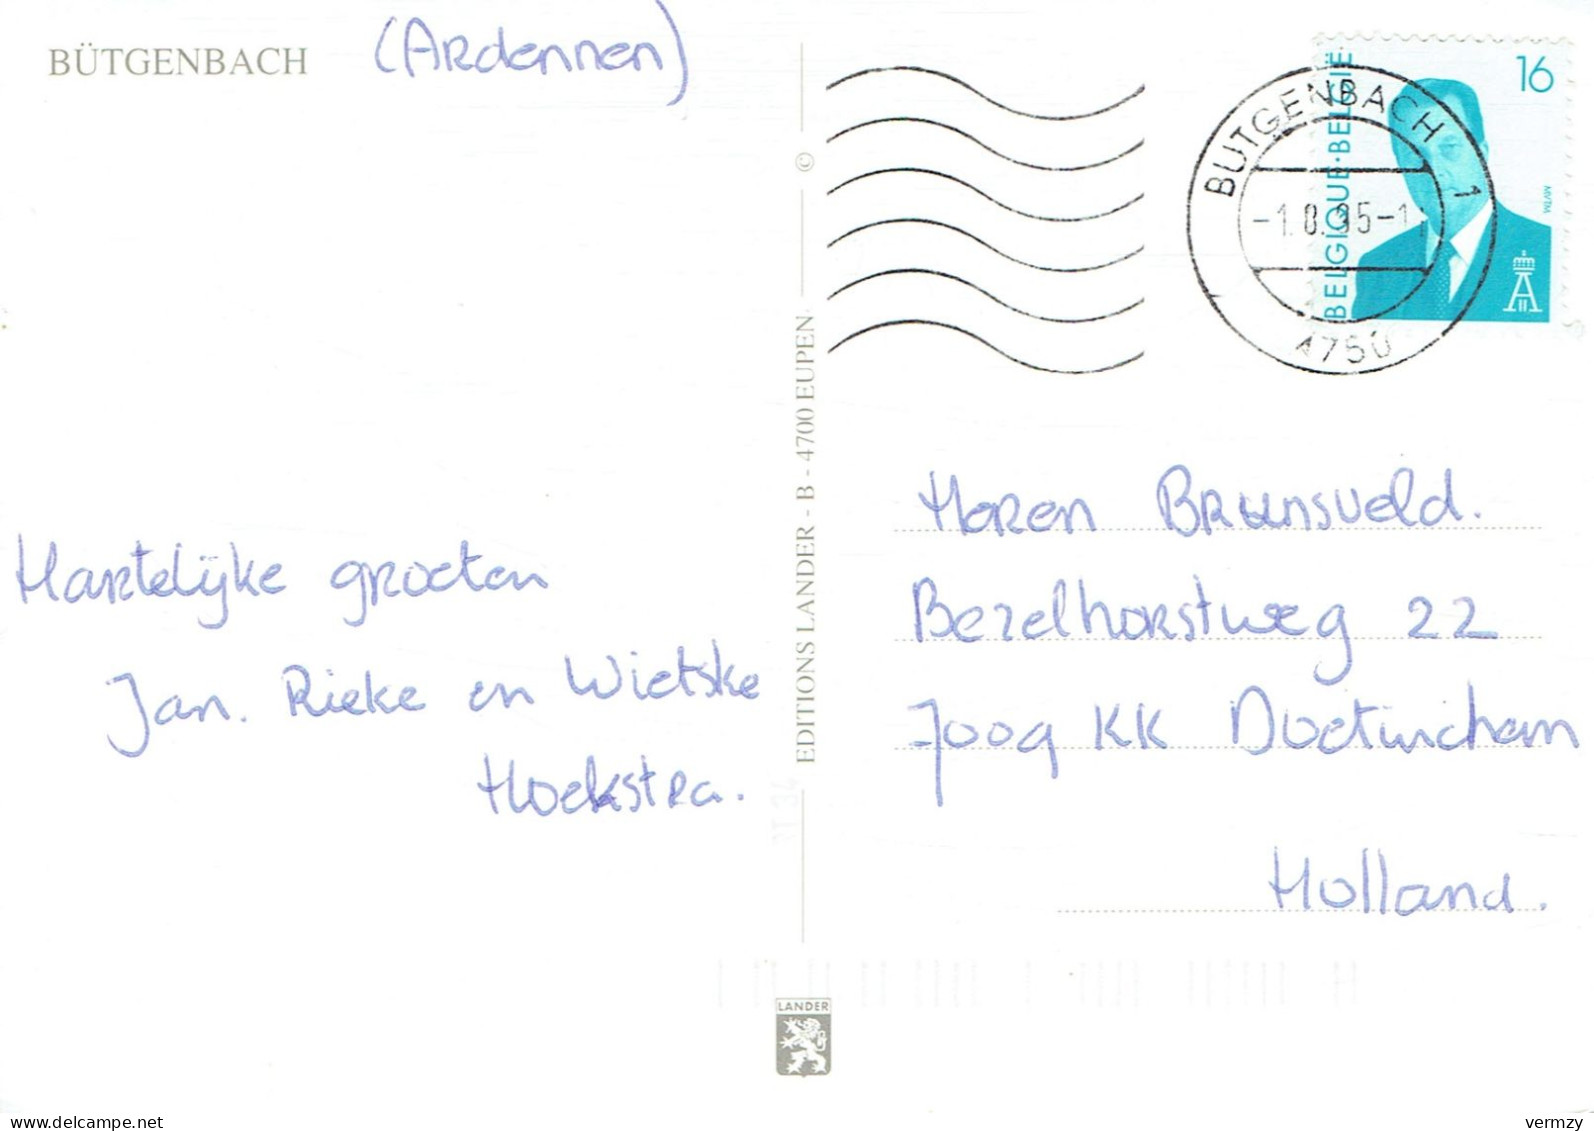 BÜTGENBACH (Ardennen)
Hartelijke groeten
Jan. Rieke en Wietske
Hoekstra.
EDITIONS LANDER - B - 4700 EUPEN
©
LANDER
BÜTGENBACH 1
4750
BELGIQUE·BELGIË
16
MVTM
Heren Bruunsveld.
Bezelhorstweg 22
7009 KK Doetinchem
Holland.
www.delcampe.net
vermzy